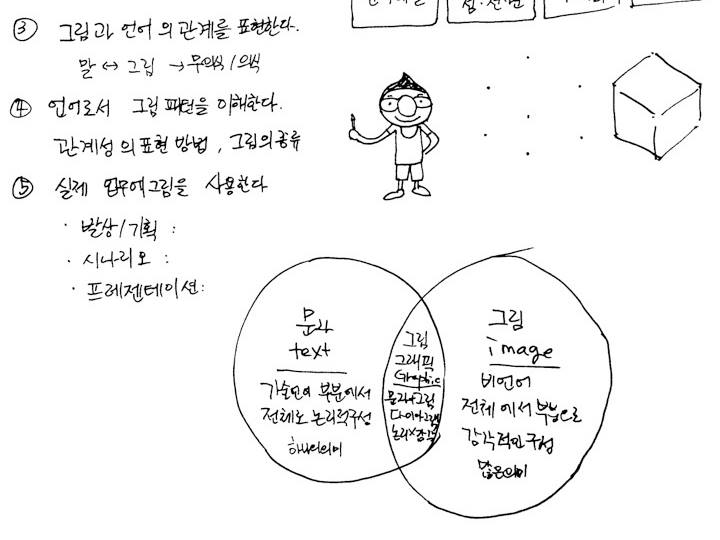 ③ 그림과 언어의 관계를 표현한다.
말 ↔ 그림 → 무의식/의식
④ 언어로서 그림 패턴을 이해한다.
관계성의 표현 방법, 그림의 종류
⑤ 실제 업무에 그림을 사용한다
· 발상/기획 :
· 시나리오 :
· 프레젠테이션:
문자
text
부분에서
전체로 논리적 구성
하나의 의미
그림
그래픽
Graphic
문자+그림
다이아그램
논리×감각
그림
image
비언어
전체에서 부분으로
감각적인 구성
많은 의미